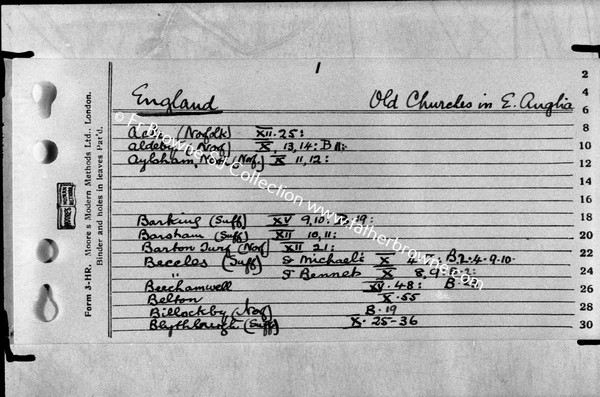 1
England Old Churches in E. Anglia
(Norfolk) XII. 25:
Aldeby (Norf) X, 13, 14: B 11:
Aylsham, (Norf) X 11, 12:
Barking (Suff) XV 9, 10. 19:
Barsham (Suff) XII 10, 11:
Barton Turf (Norf) XII 21:
Beccles (Suff) St Michael: X B.2.4.9.10.
" St Bennet X 8, 9:
Beechamwell XV. 48: B.
Belton X. 55
Billockby (Norf) B. 19
Blythborough (Suff) X. 25-36
2
4
6
8
10
12
14
16
18
20
22
24
26
28
30
Form 3-HR. Moore's Modern Methods Ltd., London.
Binder and holes in leaves Pat'd.
© Fr Browne SJ Collection www.fatherbrowne.com